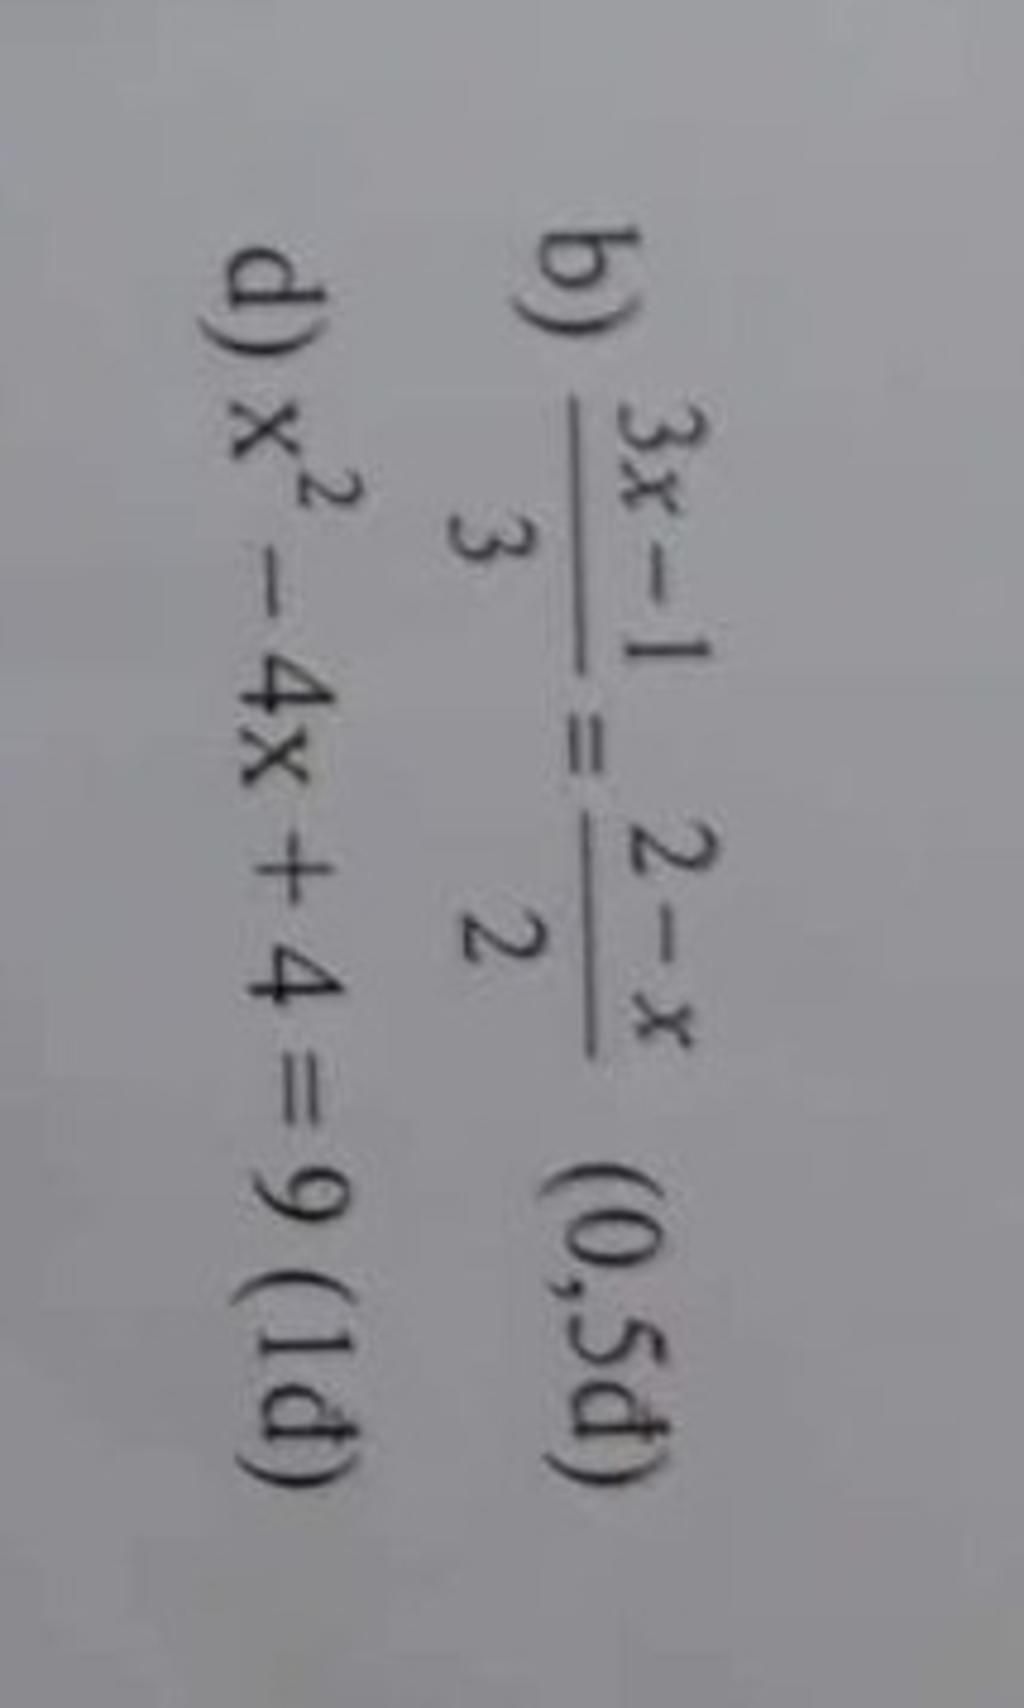 b) \frac{3x-1}{3} = \frac{2-x}{2} (0,5đ)
d) x² − 4x + 4 = 9 (1đ)